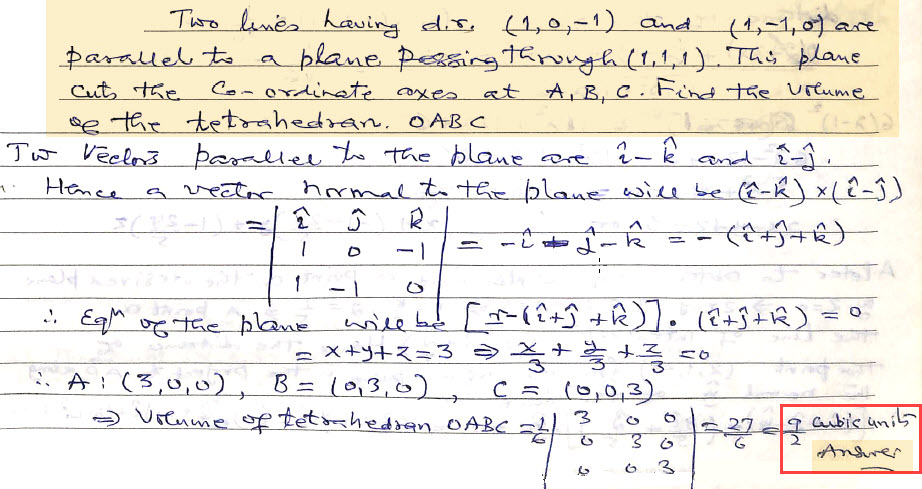 Two lines having d.r. (1,0,-1) and (1,-1,0) are
parallel to a plane passing through (1,1,1). This plane
cuts the Co-ordinate axes at A, B, C. Find the volume
of the tetrahedran. OABC
Two Vectors parallel to the plane are î-k̂ and î-ĵ.
Hence a vector normal to the plane will be (î-k̂)×(î-ĵ)
= | î ĵ k̂ |
| 1 0 -1 | = -î - ĵ - k̂ = -(î+ĵ+k̂)
| 1 -1 0 |
∴ Eqn of the plane will be [r-(î+ĵ+k̂)].(î+ĵ+k̂) = 0
= x+y+z=3 ⇒ x/3 + y/3 + z/3 = 0
∴ A: (3,0,0), B = (0,3,0), C = (0,0,3)
⇒ Volume of tetrahedran OABC = 1/6 | 3 0 0 | = 27/6 = 9/2 cubic units
| 0 3 0 | Answer
| 0 0 3 |